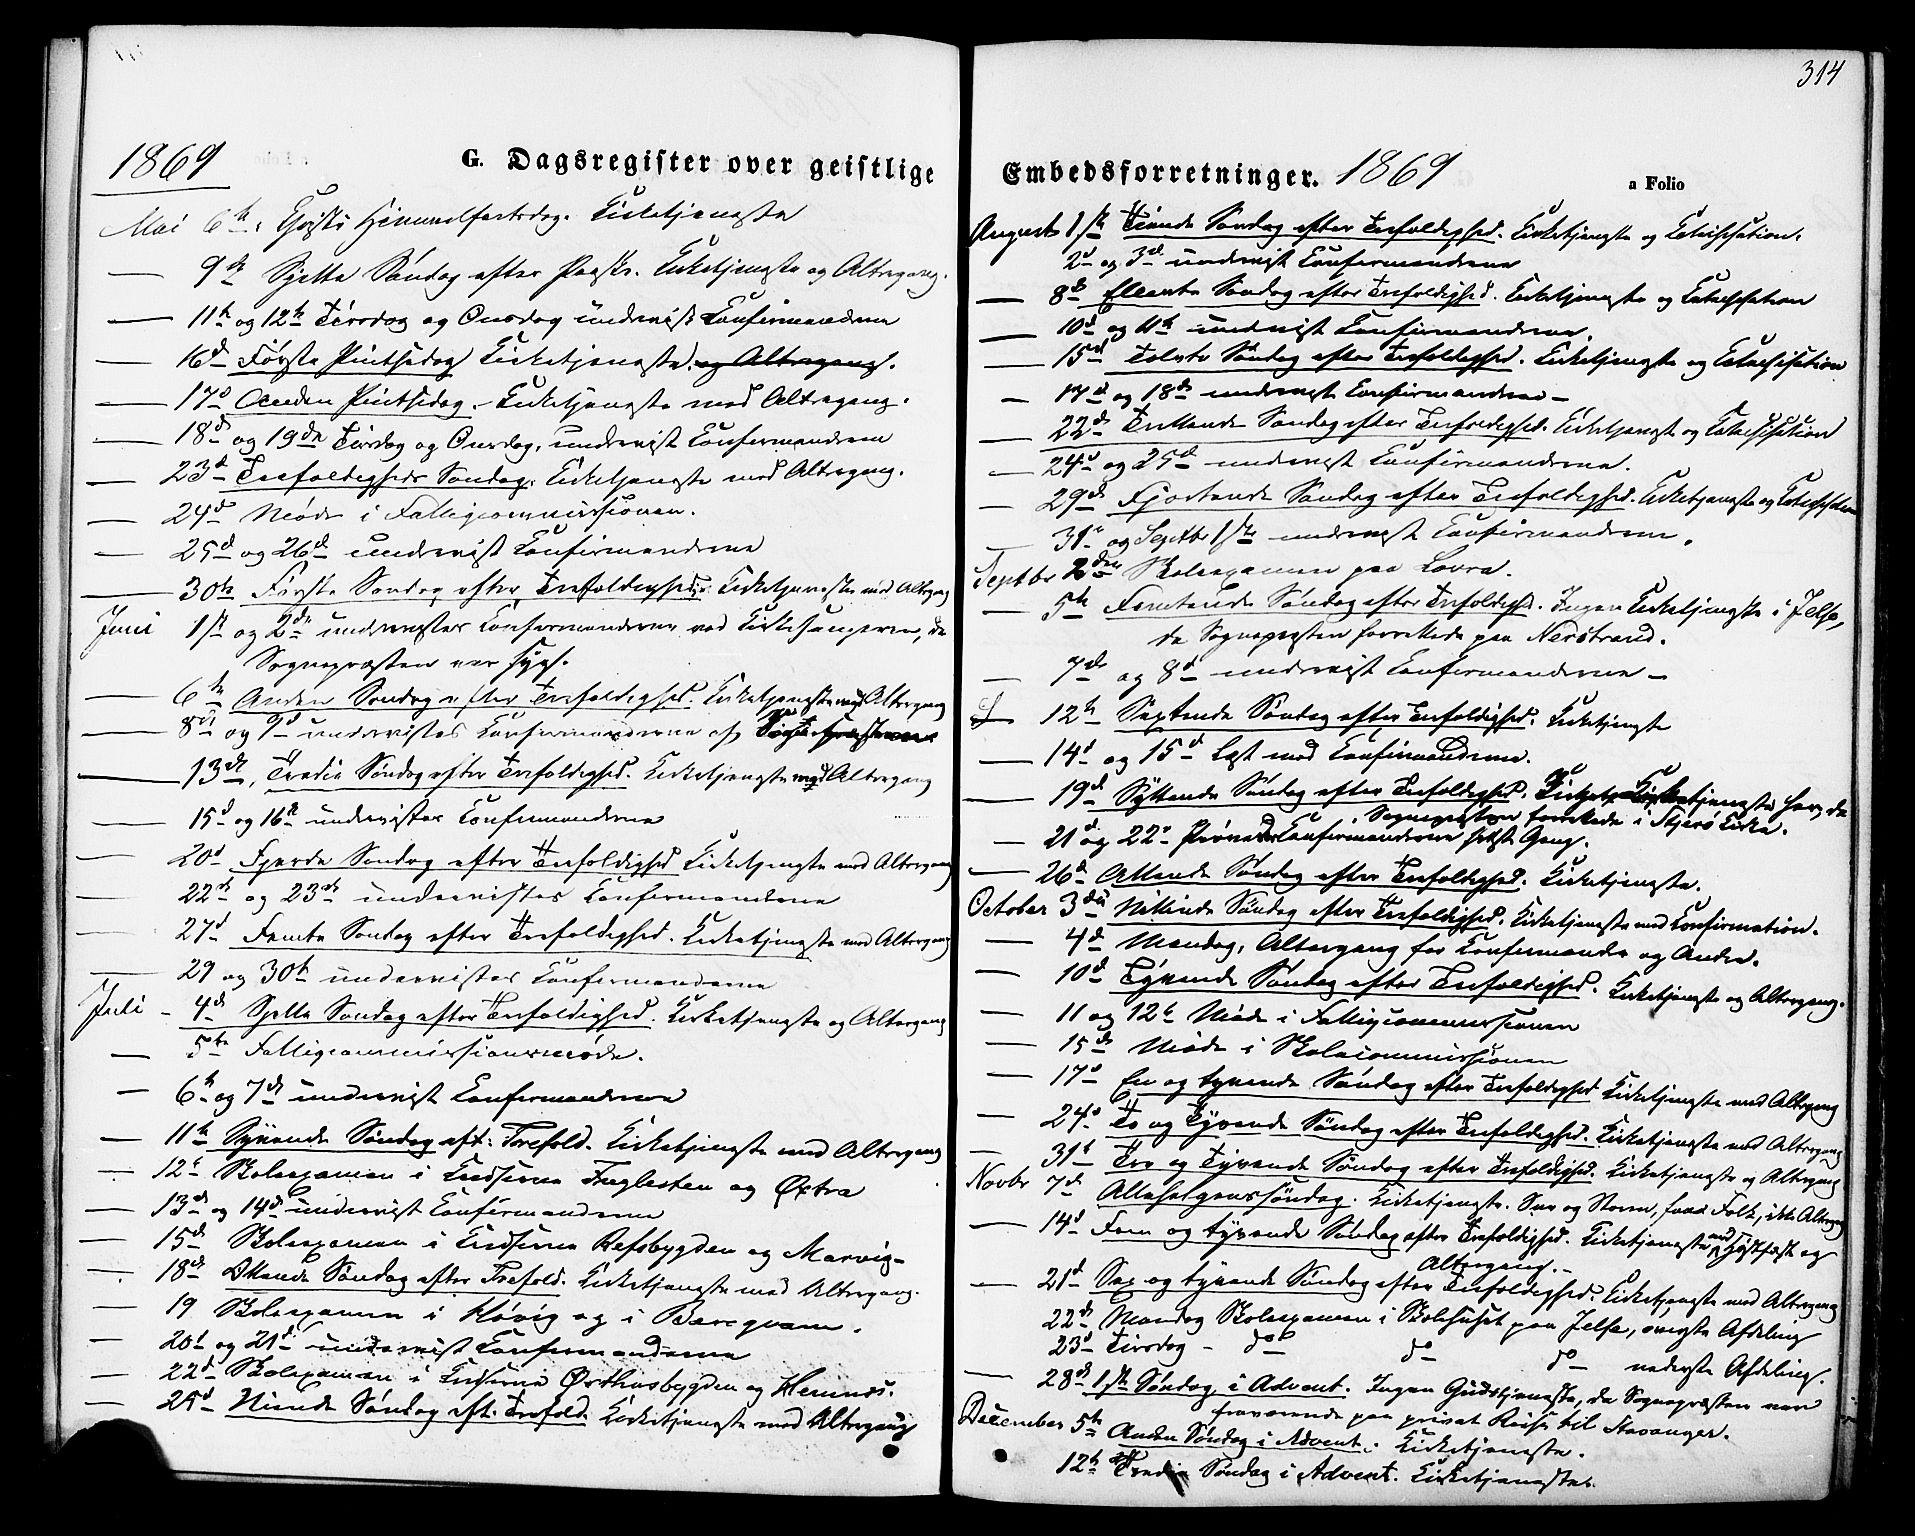 314
1869
G. Dagsregister over geistlige
Mai 6te Christi Himmelfartsdag. Kirketjeneste
— 9de Sjette Søndag efter Paaske. Kirketjeneste og Altergang.
— 11te og 12te Tirsdag og Onsdag undervist Confirmanderne
— 16d Første Pintsedag Kirketjeneste. og Altergang.
— 17d Anden Pintsedag. Kirketjeneste med Altergang.
— 18d og 19de Tirsdag og Onsdag, undervist Confirmanderne
— 23d Trefoldigheds Søndag. Kirketjeneste med Altergang.
— 24d Møde i Fattigcommissionen.
— 25d og 26d undervist Confirmanderne
— 30te Første Søndag efter Trefoldighed. Kirketjeneste med Altergang
Juni 1ste og 2den undervistes Confirmanderne ved Kirkesangeren, da
Sognepræsten var syg.
— 6te Anden Søndag efter Trefoldighed. Kirketjeneste med Altergang
— 8de og 9d undervistes Confirmanderne af
— 13de, Tredie Søndag efter Trefoldighed. Kirketjeneste med Altergang
— 15d og 16te undervistes Confirmanderne
— 20d Fjerde Søndag efter Trefoldighed Kirketjeneste med Altergang
— 22de og 23de undervistes Confirmanderne
— 27d Femte Søndag efter Trefoldighed. Kirketjeneste med Altergang
— 29 og 30te undervistes Confirmanderne
Juli - 4de Sjette Søndag efter Trefoldighed. Kirketjeneste og Altergang
— 5te Fattigcommissionsmøde.
— 6te og 7de undervist Confirmanderne
— 11te Syvende Søndag eft: Trefold. Kirketjeneste med Altergang
— 12te Skolexamen i Kredserne Fuglesten og Østra
— 13de og 14d undervist Confirmanderne
— 15de Skolexamen i Kredserne Refsbygden og Marvig-
— 18de Ottende Søndag efter Trefold. Kirketjeneste med Altergang.
— 19 Skolexamen i Høvig og i Bareqvam.
— 20d og 21d undervist Confirmanderne
— 22d Skolexamen i Kredserne Østhusbygden og Hemnes.
— 25d Niende Søndag eft. Trefold. Kirketjeneste med Altergang
Embedsforretninger. 1869
a Folio
August 1ste Tiende Søndag efter Trefoldighed. Kirketjeneste og Catechisation.
2d og 3d undervist Confirmanderne
— 8de Ellevte Søndag efter Trefoldighed. Kirketjeneste og Catechisation
— 10d og 11te undervist Confirmanderne.
— 15d Tolvte Søndag efter Trefoldighed. Kirketjeneste og Catechisation
— 17d og 18de undervist Confirmanderne -
— 22de Trettende Søndag efter Trefoldighed. Kirketjeneste og Catechisation
— 24d og 25d undervist Confirmanderne.
— 29de Fjortende Søndag efter Trefoldighed. Kirketjeneste og Catechisation
— 31te og Septbr 1ste undervist Confirmanderne.
Septbr 2den Skolexamen paa Lovra.
— 5te Femtende Søndag efter Trefoldighed. Ingen Kirketjeneste i Jelse,
da Sognepræsten forrettede paa Nerstrand.
— 7de og 8d undervist Confirmanderne -
12te Sextende Søndag efter Trefoldighed. Kirketjeneste
— 14d og 15d Læst med Confirmanderne.
— 19d Syttende Søndag efter Trefoldighed. Kirketjeneste her, da
Sognepræsten forrettede i Stjerø Kirke.
— 21d og 22d Prøvedes Confirmanderne sidste Gang.
— 26d Attende Søndag efter Trefoldighed. Kirketjeneste.
October 3die Nittende Søndag efter Trefoldighed. Kirketjeneste med Confirmation.
— 4d Mandag, Altergang for Confirmander og Andre.
— 10d Tyvende Søndag efter Trefoldighed. Kirketjeneste og Altergang.
— 11 og 12te Møde i Fattigcommissionen
— 15de Møde i Skolecommissionen
— 17d En og tyvende Søndag efter Trefoldighed Kirketjeneste med Altergang
— 24d To og Tyvende Søndag efter Trefoldighed. Kirketjeneste med Altergang
— 31te Tre og Tyvende Søndag efter Trefoldighed. Kirketjeneste og Altergang
Novbr 7d Allehelgenssøndag. Kirketjeneste. Sne og Storm, faa Folk, ikke Altergang
— 14d Fem og tyvende Søndag efter Trefoldighed. Kirketjeneste med Høstfæst og
Altergang.
— 21d Sex og tyvende Søndag efter Trefoldighed. Kirketjeneste med Altergang
22de Mandag Skolexamen i Skolehuset paa Jelse, øverste Afdeling
23d Tirsdag - do do do nederste Afdeling.
28de 1ste Søndag i Advent. Ingen Gudstjeneste, da Sognepræsten var
fraværende paa privat Reise til Stavanger.
December 5te Anden Søndag i Advent. Kirketjeneste.
12te Tredie Søndag i Advent. Kirketjeneste.